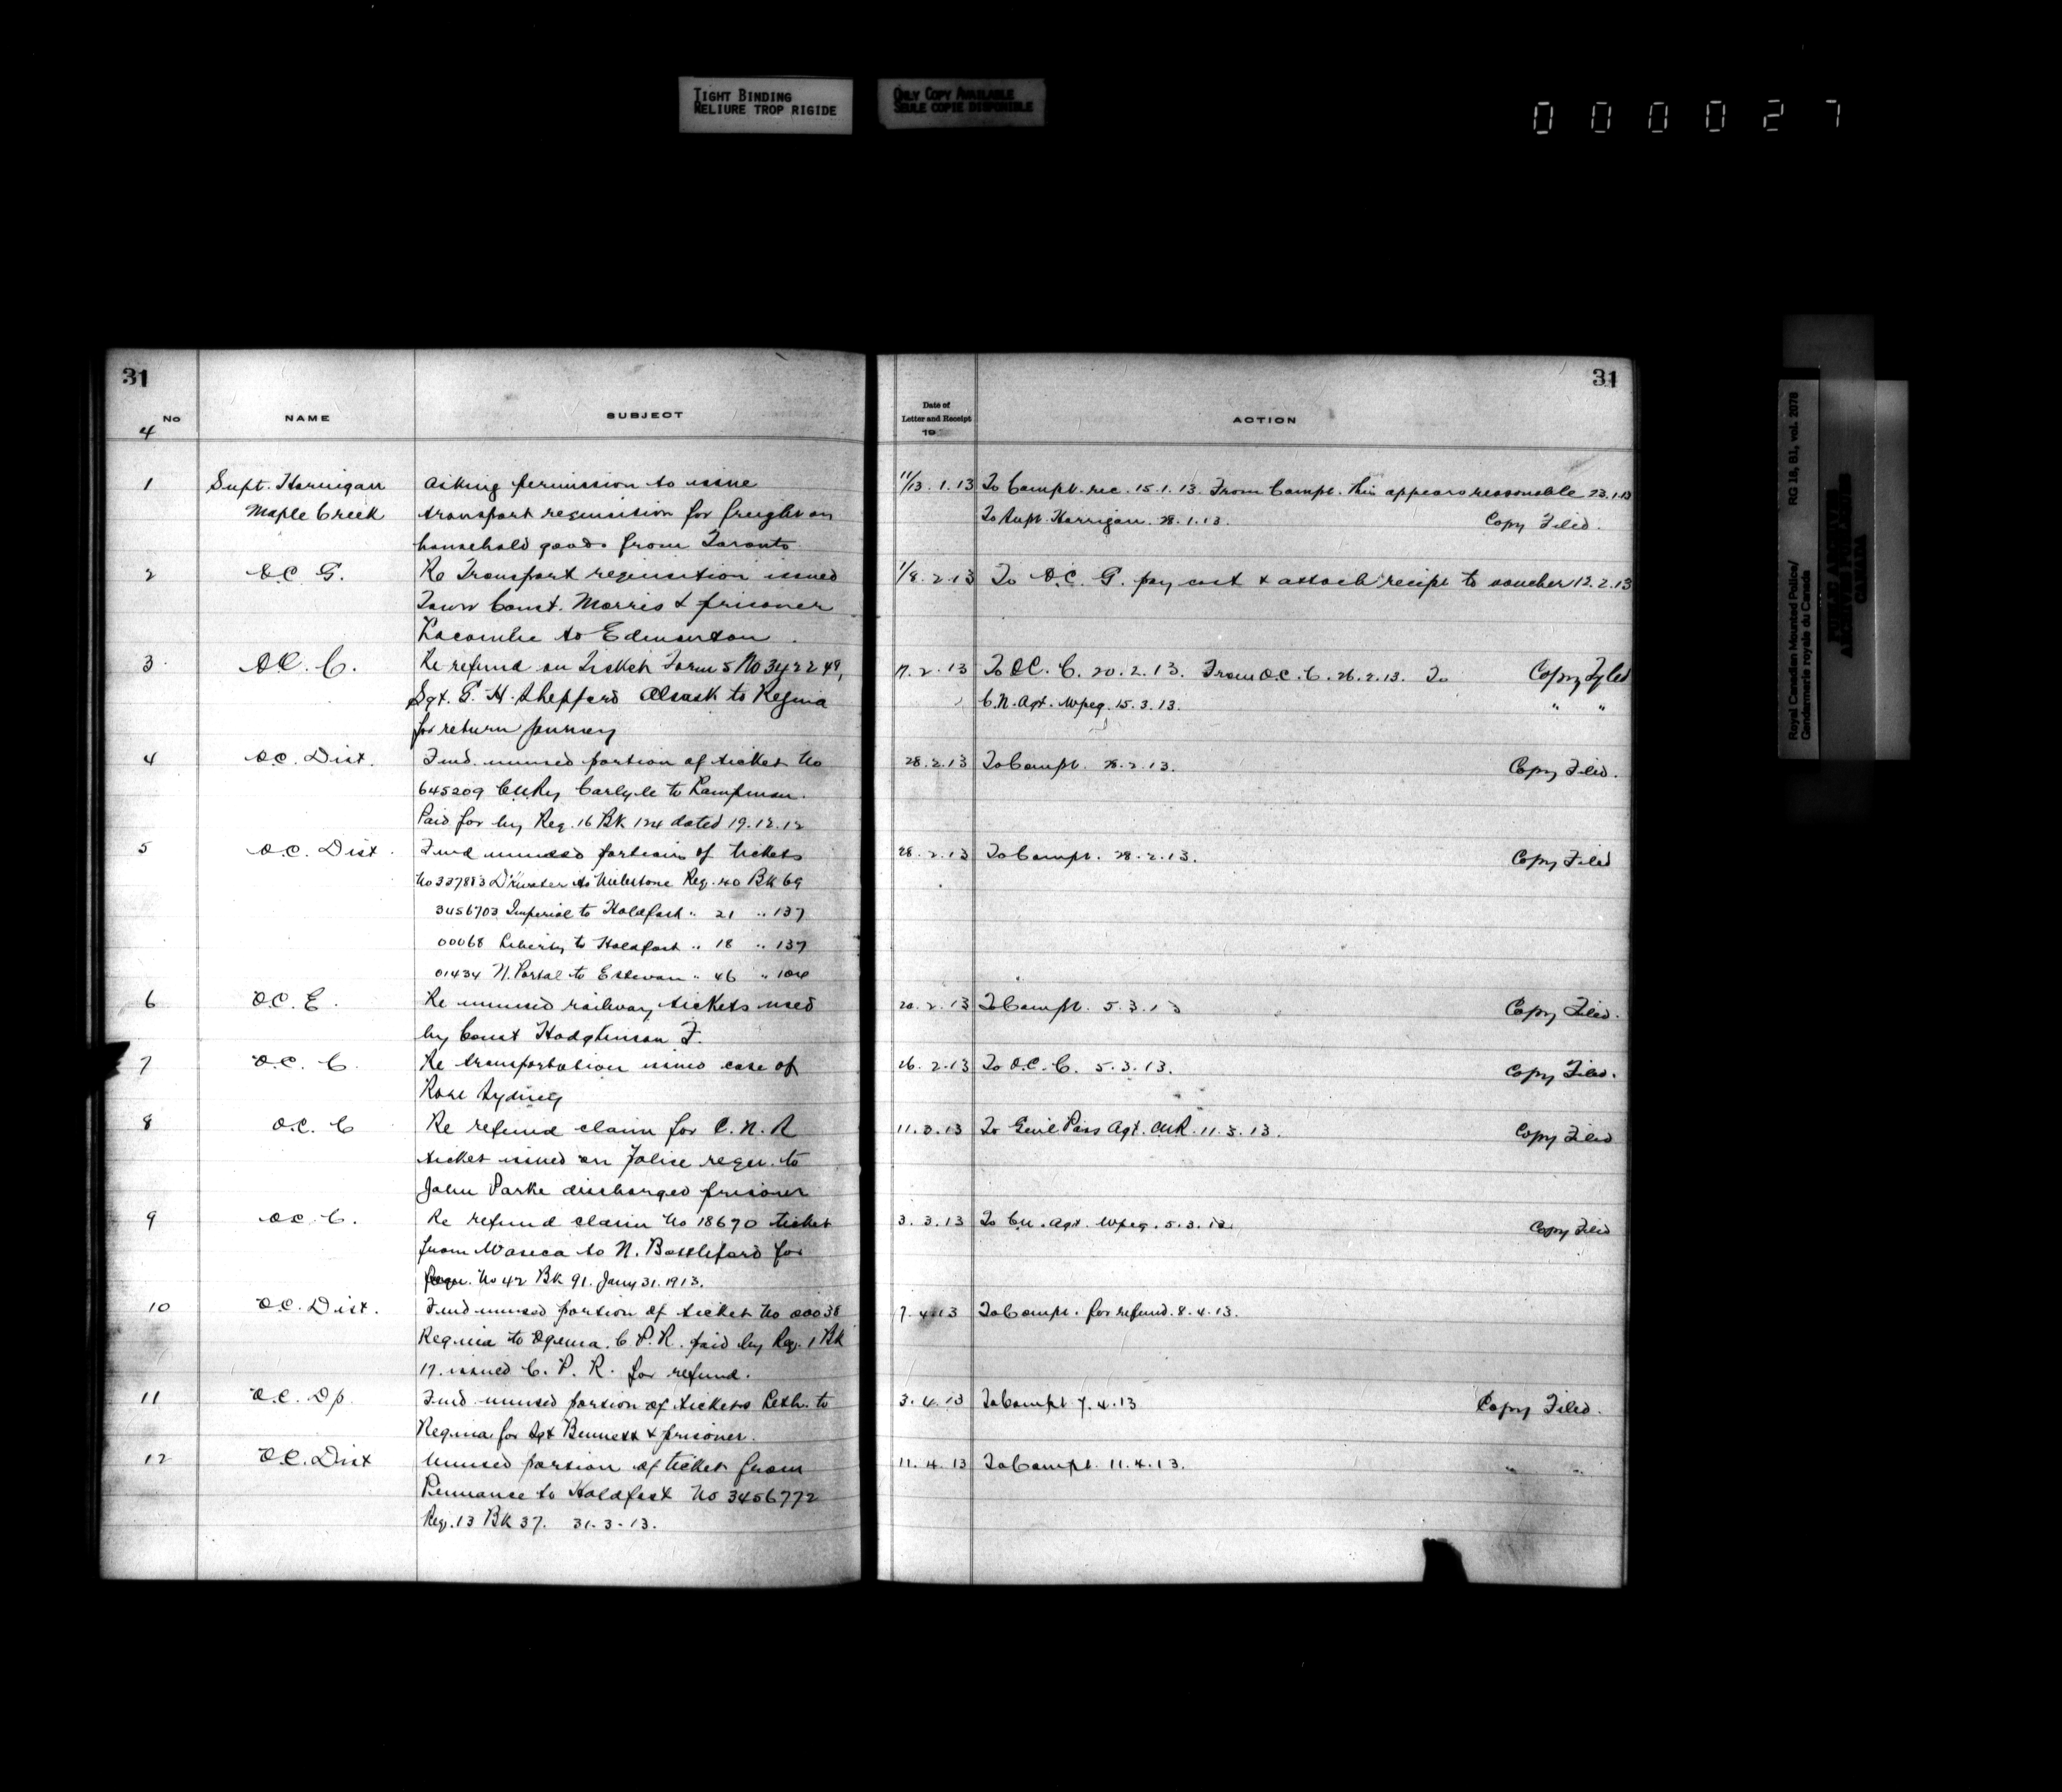 TIGHT BINDING
RELIURE TROP RIGIDE
ONLY COPY AVAILABLE
SEULE COPIE DISPONIBLE
000027
31
No NAME SUBJECT
4
1 Supt. Horrigan Asking permission to issue
Maple Creek transport requisition for freight on
household goods from Toronto
2 O.C. G. Re Transport requisition issued
Town Const. Morris & prisoner
Lacombe to Edmonton.
3 O.C. C. Re refund on Ticket Form 5
Sgt. G. H. Sheppard Alsask to Regina
for return journey
4 O.C. Dist. Fwd. unused portion of ticket No
645209 CNRy Carlyle to Lampman.
Paid for by Req. 16 Bk 124 dated 19.12.12
5 O.C. Dist. Fwd unused portions of tickets
No 337883 Drinkwater to Milestone Req. 20 Bk 69
3456703 Imperial to Holdfast " 21 " 137
00068 Liberty to Holdfast " 18 " 137
01434 N. Portal to Estevan " 46 " 104
6 O.C. E. Re unused railway tickets used
by Const Hodgkinson F.
7 O.C. C. Re transportation issued case of
Rose Sydney
8 O.C. C Re refund claim for C.N.R
ticket issued on Police reqn. to
John Parke discharged prisoner
9 O.C. C. Re refund claim No 18670 ticket
from Waseca to N. Battleford for
Reqn. No 42 Bk 91. Jany 31. 1913.
10 O.C. Dist. Fwd unused portion of ticket No 00038
Regina to Ogema. C.P.R. paid by Req. 1 Bk
17. issued C.P.R. for refund.
11 O.C. Dp. Fwd unused portion of tickets Leth. to
Regina for Sgt Bennett & prisoner.
12 O.C. Dist Unused portion of ticket from
Penzance to Holdfast No 3456772
Req. 13 Bk 37. 31.3.13.
31
Date of
Letter and Receipt
19
ACTION
11/13.1.13 To Compt. rec. 15.1.13. From Compt. this appears reasonable 23.1.13
To Supt. Horrigan. 28.1.13. Copy Filed.
1/8.2.13 To O.C. G. pay cost & attach receipt to voucher 12.2.13
17.2.13 To O.C. C. 20.2.13. From O.C. C. 26.2.13. To Copy Fyled
C.N. Agt. Wpeg. 15.3.13. " "
28.2.13 To Compt. 28.2.13. Copy Filed.
28.2.13 To Compt. 28.2.13. Copy Filed
20.2.13 To Compt. 5.3.13 Copy Filed.
26.2.13 To O.C. C. 5.3.13. Copy Filed.
11.3.13 To Genl Pass Agt. CNR. 11.3.13. Copy Filed
3.3.13 To CN. Agt. Wpeg. 5.3.13. Copy Filed
7.4.13 To Compt. for refund. 8.4.13.
3.4.13 To Compt 7.4.13 Copy Filed.
11.4.13 To Compt. 11.4.13. " "
Royal Canadian Mounted Police/ RG 18, B1, vol. 2078
Gendarmerie royale du Canada
PUBLIC ARCHIVES
ARCHIVES PUBLIQUES
CANADA